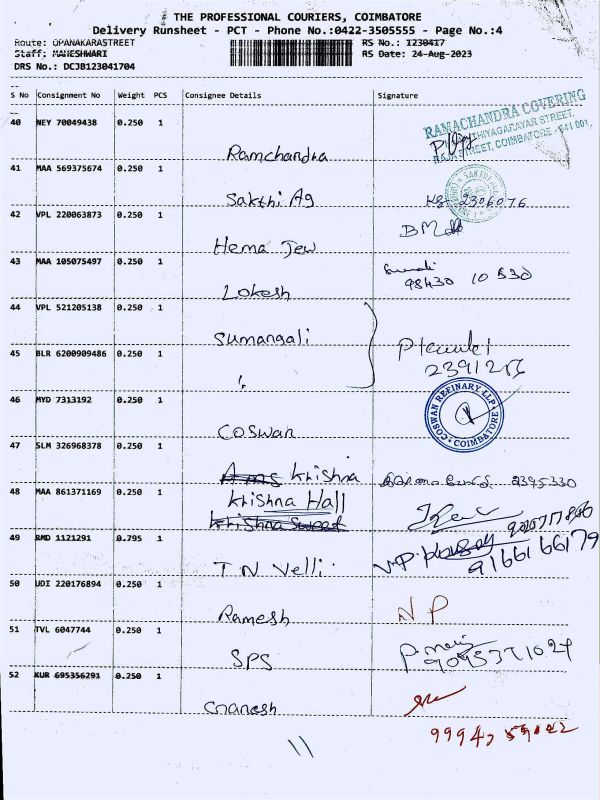 THE PROFESSIONAL COURIERS, COIMBATORE
Delivery Runsheet - PCT - Phone No.:0422-3505555 - Page No.:4
Route: OPANAKARASTREET RS No.: 1230417
Staff: MAHESHWARI RS Date: 24-Aug-2023
DRS No.: DCJB123041704
S No Consignment No Weight PCS Consignee Details Signature
40 NEY 70049438 0.250 1
RAMACHANDRA COVERING
THIYAGARAYAR STREET,
STREET, COIMBATORE - 641 001.
Ramchandra
41 MAA 569375674 0.250 1
Sakthi Ag 2306076
42 VPL 220063873 0.250 1
Hema Jew
43 MAA 105075497 0.250 1
98430 10530
Lokesh
44 VPL 521205138 0.250 1
Sumangali
45 BLR 6200909486 0.250 1
"
46 MYD 7313192 0.250 1
COSWAN REFINARY LLP
COIMBATORE
Coswan
47 SLM 326968378 0.250 1
Ams Krishna 2395330
48 MAA 861371169 0.250 1
Krishna Hall
Krishna Sweet
49 RMD 1121291 0.795 1
T N Velli 9166166179
50 UDI 220176894 0.250 1
Ramesh N P
51 TVL 6047744 0.250 1
SPS
52 KUR 695356291 0.250 1
Gnanesh